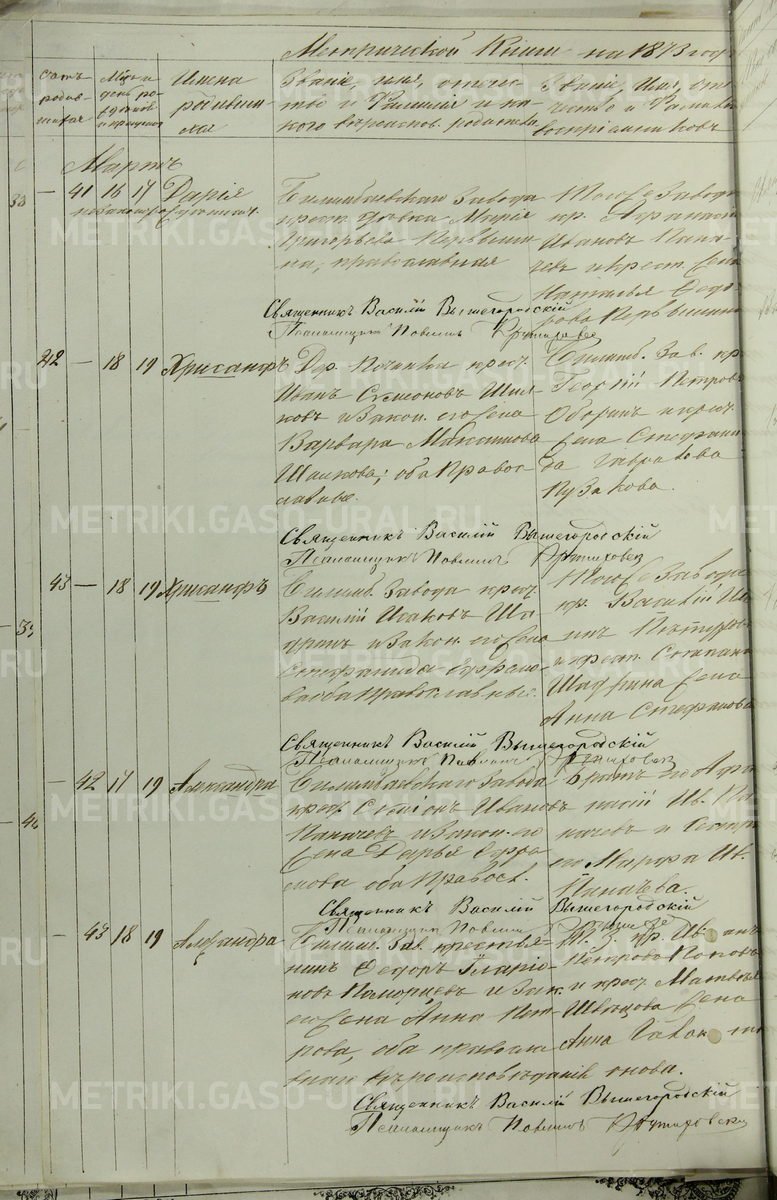 Метрической Книги на 1873 годъ
Счетъ родив-шихся
Мѣс. и день рожденія и крещенія
Имена родивших-ся
Званіе, имя, отче-
ство и Фамилія и ка-
кого вѣроиспов. родители
Званіе, Имя, оте-
чество и Фамилія
воспріемниковъ
Мартъ
— 41 16 17 Дарія
незаконорожденная
Билимбаевскаго Завода
крест. дѣвка Марія
Григорьева Первуши
на, православная
Того же Завода
кр. Афанасій
Ивановъ Пана-
евъ и крест. жена
Наталья Ѳедо-
рова Первушина
Священникъ Василій Вышегородскій
Псаломщикъ Павелъ
42 — 18 19 Хрисанфъ
Дер. Починка крес.
Иванъ Семеновъ Шил-
ковъ и закон. его жена
Варвара Максимова
Шилкова; оба Правос-
лавные.
Билимб. Зав. кр.
Георгій Петровъ
Оборинъ и крес.
жена Стефани-
да Гаврилова
Пузакова.
Священникъ Василій Вышегородскій
Псаломщикъ Павелъ
43 — 18 19 Хрисанфъ
Билимб. Завода крес.
Василій Исаковъ Ша
дринъ и Закон. его жена
Стефанида Ефремо-
ва оба Православные.
Того же Завода
кр. Василій
и крест. Степана
Шадрина жена
Анна Стефанова
Священникъ Василій Вышегородскій
Псаломщикъ Павелъ
— 42 17 19 Александра
Билимбаевскаго Завода
крес. Семіонъ Ивановъ
Паначевъ и закон. его
жена Дарья Ефре-
мова оба Правосл.
Братъ его Афа
насій Ив. Па
начевъ и Сестра
его Марфа Ив.
Панаѣва.
Священникъ Василій Вышегородскій
Псаломщикъ Павелъ
— 43 18 19 Александра
Билимб. Зав. крестья-
нинъ Ѳедоръ Иларіо-
новъ и Зак.
его жена Анна Пет
рова, оба правосла
вная вѣроисповѣданія
Т. З. кр. Иванъ
Петровъ Поповъ
и крес. Матвѣя
Швецова жена
Анна
онова.
Священникъ Василій Вышегородскій
Псаломщикъ Павелъ
METRIKI.GASO-URAL.RU